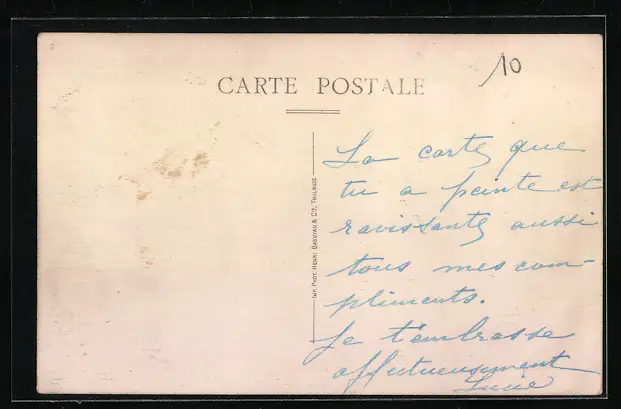 10
CARTE POSTALE
IMP. PHOT. HENRI BASUYAU & CIE, TOULOUSE
La carte que
tu a peinte est
ravissante aussi
tous mes com-
pliments.
Je t'embrasse
affectueusement
Lucie